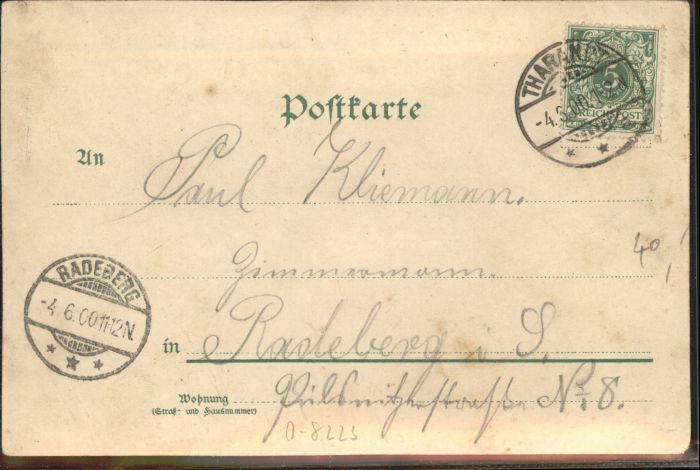 THARANDT
-4.6.00
5
REICHSPOST
Postkarte
An
Paul Kliemann.
40,
Zimmermann.
RADEBERG
-4.6.00 11-12N.
in Radeberg i. S.
Wohnung
(Straß- und Hausnummer)
Pulsnitzerstraße № 8.
0-8225